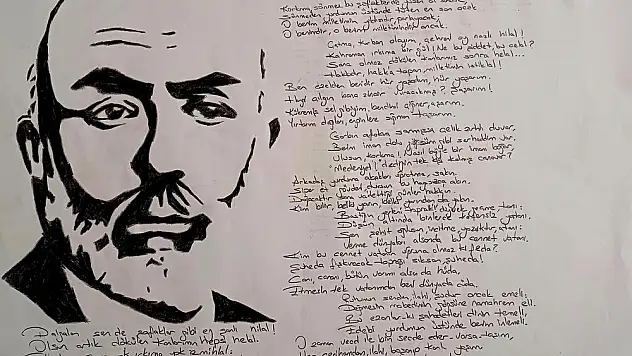 Korkma, sönmez bu şafaklarda yüzen al sancak
Sönmeden yurdumun üstünde tüten en son ocak
O benim milletimin yıldızıdır, parlayacak;
O benimdir, o benim milletimindir ancak.
Çatma, kurban olayım, çehreni ey nazlı hilal!
Kahraman ırkıma bir gül! Ne bu şiddet, bu celal?
Sana olmaz dökülen kanlarımız sonra helal...
Hakkıdır, hakk'a tapan, milletimin istiklal!
Ben ezelden beridir hür yaşadım, hür yaşarım.
Hangi çılgın bana zincir vuracakmış? Şaşarım!
Kükremiş sel gibiyim, bendimi çiğner, aşarım.
Yırtarım dağları, enginlere sığmam, taşarım.
Garbın afakını sarmışsa çelik zırhlı duvar,
Benim iman dolu göğsüm gibi serhaddim var.
Ulusun, korkma! Nasıl böyle bir imanı boğar,
"Medeniyet!" dediğin tek diş kalmış canavar?
Arkadaş! yurduma alçakları uğratma, sakın.
Siper et gövdeni, dursun bu hayasızca akın.
Doğacaktır sana va'dettiği günler hakkın..
Kim bilir, belki yarın, belki yarından da yakın.
Bastığın yerleri "toprak!" diyerek geçme, tanı:
Düşün altında binlerce kefensiz yatanı.
Sen şehit oğlusun, incitme, yazıktır, atanı:
Verme, dünyaları alsanda bu cennet vatanı.
Kim bu cennet vatanın uğruna olmaz ki feda?
Şüheda fışkıracak toprağı sıksan, şüheda!
Canı, cananı, bütün varımı alsa da hüda,
Etmesin tek vatanımdan beni dünyada cüda.
Ruhumun senden, ilahi, şudur ancak emeli:
Değmesin mabedimin göğsüne namahrem eli.
Bu ezanlar-ki şahadetleri dinin temeli,
Ebedi yurdumun üstünde benim inlemeli.
O zaman vecd ile bin secde eder, varsa, taşım
Her cerihamdan, ilahi, boşanıp kanlı yaşım
Dalgalan sen de şafaklar gibi ey şanlı hilal!
Olsun artık dökülen kanlarımın hepsi helal.
ırkıma yok izmihlal: